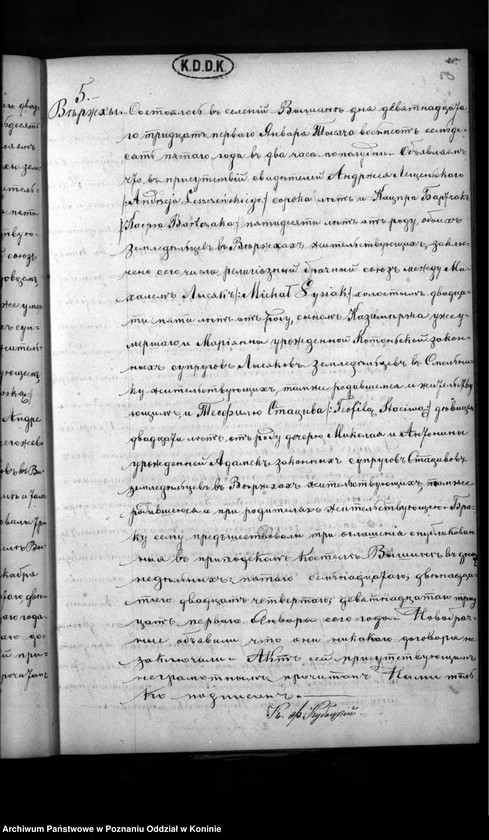 K.D.D.K.
5.
Вѣржхы. Состоялось въ селеніи Вышинѣ дня девятнадцата-
го тридцать перваго Января Тысяча восемсотъ семьде-
сятъ пятаго года въ два часа пополудни. Объявляемъ
что въ присутствіи свидѣтелей Андржея Лещенскаго
/Andrzeja Leszczeńskiego/ сорока лѣтъ и Кацпра Бартчакъ
/Kacpra Bartczaka/ пятидесяти лѣтъ отъ роду, обоихъ
земледѣльцевъ въ Вѣржхахъ жительствующихъ, заклю-
чено сего числа религіозный брачный союзъ между Ми-
халемъ Лисякъ /:Michał Lysiak:/ холостымъ двадца-
ти пяти лѣтъ отъ роду, сыномъ Казимержа уже у-
мершаго и Маріанны урожденной закон-
ныхъ супруговъ Лисяковъ земледѣльцевъ въ
ку жительствующихъ, тамже родившемся и жительству-
ющимъ, и Теофилею Стацива /:Teofila Staciwa:/ дѣвицею
двадцати лѣтъ отъ роду дочерю Миколая и Антонины
урожденной Адамекъ законныхъ супруговъ Стацивовъ
земледѣльцевъ въ Вѣржхахъ жительствующихъ, тамже
родившеюся и при родителяхъ жительствующею. Бра-
ку сему предшествовали три оглашенія опубликован-
ныя въ приходскомъ костелѣ Вышинѣ въ дняхъ
недѣльныхъ: пятаго семнадцатаго; двѣнадца-
таго двадцать четвертаго; девятнадцатаго трид-
цать перваго Января сего года. Новобрач-
ные объявили что они никакого договора не
заключили. Актъ сей присутствующимъ
неграмотнымъ прочитанъ Нами толь-
ко подписанъ.
Кс.
Archiwum Państwowe w Poznaniu Oddział w Koninie